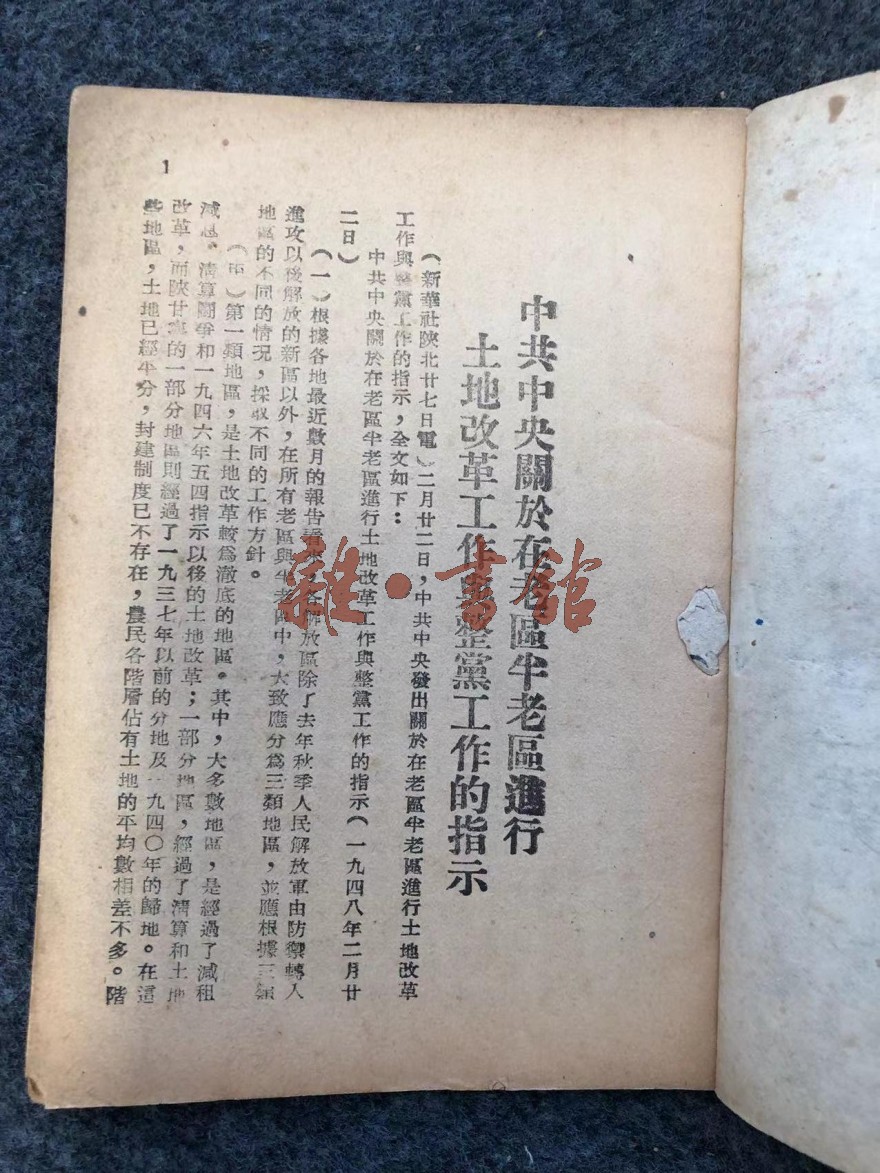 中共中央關於在老區半老區進行
土地改革工作與整黨工作的指示
（新華社陝北廿七日電）二月廿二日，中共中央發出關於在老區半老區進行土地改革
工作與整黨工作的指示，全文如下：
中共中央關於在老區半老區進行土地改革工作與整黨工作的指示（一九四八年二月廿
二日）
（一）根據各地最近數月的報告看來，各解放區除了去年秋季人民解放軍由防禦轉入
進攻以後解放的新區以外，在所有老區與半老區中，大致應分為三類地區，並應根據三類
地區的不同的情況，採取不同的工作方針。
（甲）第一類地區，是土地改革較為澈底的地區。其中，大多數地區，是經過了減租
減息、清算鬪爭和一九四六年五四指示以後的土地改革；一部分地區，經過了清算和土地
改革，而陝甘寧的一部分地區則經過了一九三七年以前的分地及一九四〇年的歸地。在這
些地區，土地已經平分，封建制度已不存在，農民各階層佔有土地的平均數相差不多。階
1
雜·書館